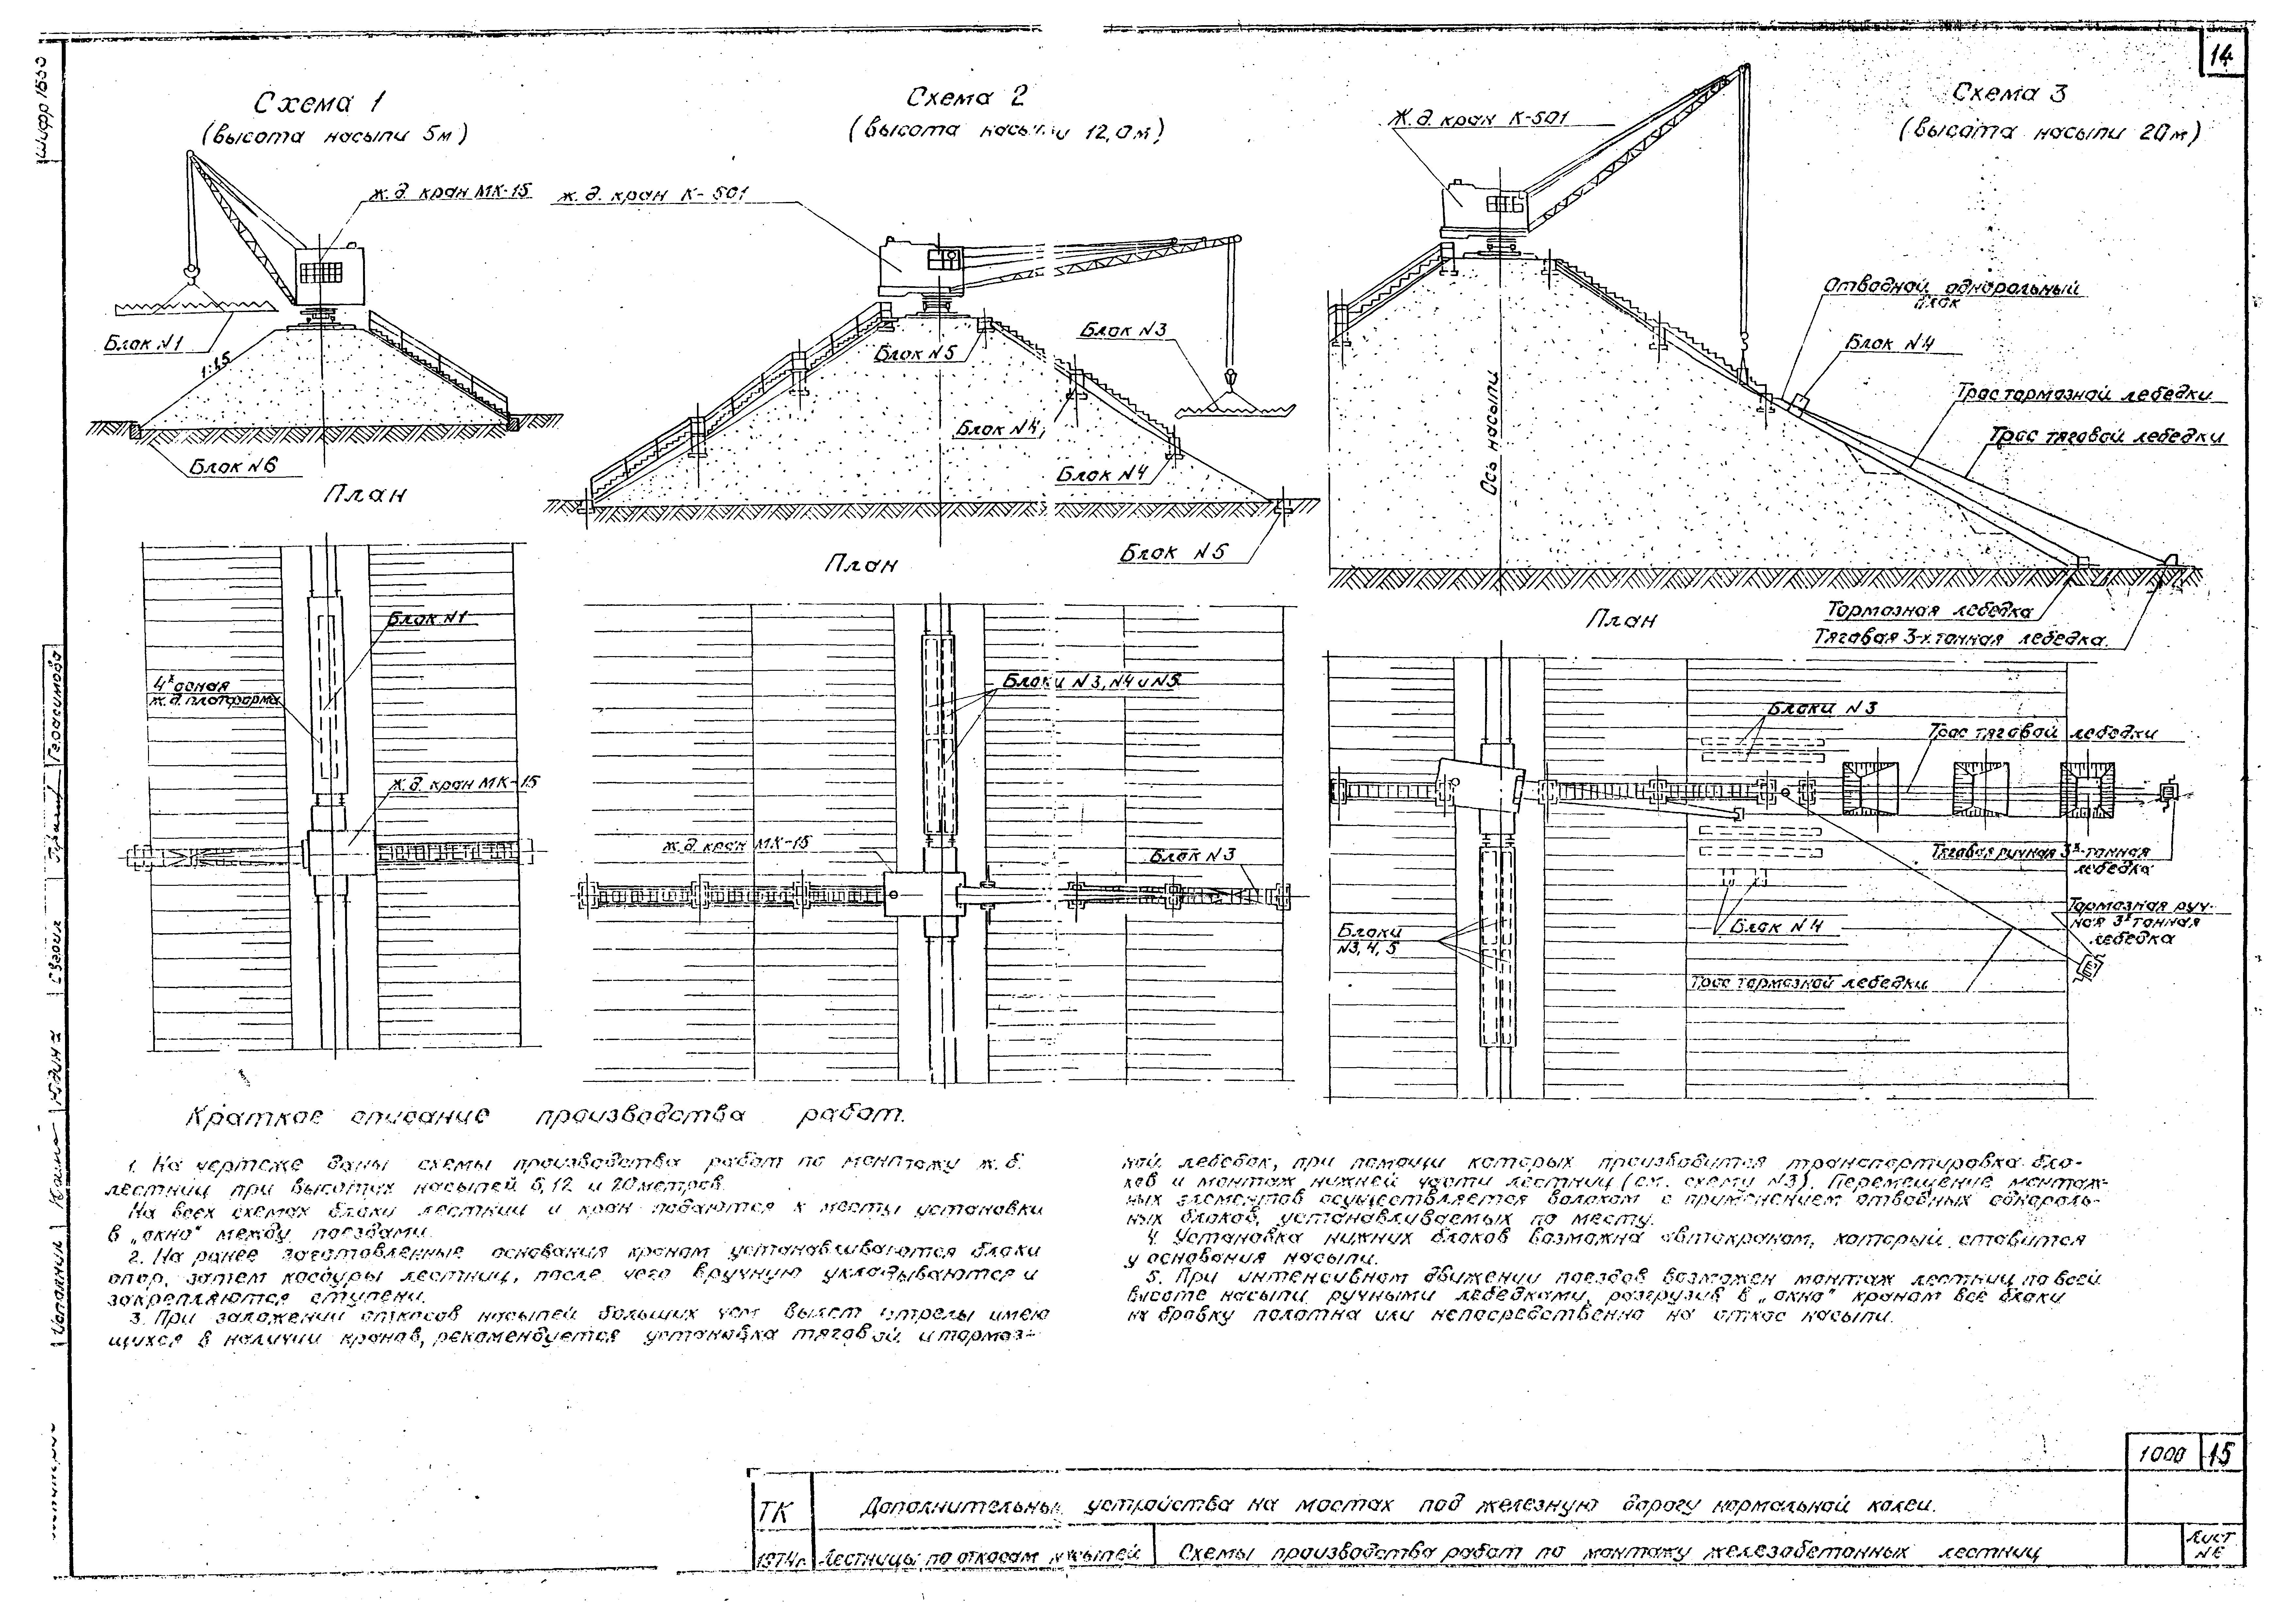 Шифр 1630
14
Схема 1
(высота насыпи 5м)
ж.д. кран МК-15
Блок N1
1:1,5
Блок N6
План
Блок N1
4х осная
ж.д. платформа
ж.д. кран МК-15
Схема 2
(высота насыпи 12,0м)
ж.д. кран К-501
Блок N5
Блок N3
Блок N4
Блок N4
Блок N5
План
Блоки N3, N4 и N5
ж.д. кран МК-15
Блок N3
Схема 3
(высота насыпи 20м)
ж.д. кран К-501
Отводной однорольный
блок
Блок N4
Трос тормозной лебедки
Трос тяговой лебедки
Ось насыпи
Тормозная лебедка
Тяговая 3-х тонная лебедка.
План
Блоки N3
Трос тяговой лебедки
Тяговая ручная 3х тонная
лебедка
Тормозная руч-
ная 3х тонная
лебедка
Блок N4
Блоки
N3, 4, 5
Трос тормозной лебедки
Краткое описание производства работ.
1. На чертеже даны схемы производства работ по монтажу ж.б.
лестниц при высотах насыпей 6, 12 и 20 метров.
На всех схемах блоки лестниц и кран подаются к месту установки
в „окно" между поездами.
2. На ранее заготовленные основания краном устанавливаются блоки
опор, затем косоуры лестниц, после чего вручную укладываются и
закрепляются ступени.
3. При заложении откосов насыпей больших чем вылет стрелы имею
щихся в наличии кранов, рекомендуется установка тяговой и тормоз-
ной лебедок, при помощи которых производится транспортировка бло-
ков и монтаж нижней части лестниц (см. схему N3). Перемещение монтаж-
ных элементов осуществляется волоком с применением отводных одноро­ль-
ных блоков, устанавливаемых по месту.
4. Установка нижних блоков возможна автокраном, который ставится
у основания насыпи.
5. При интенсивном движении поездов возможен монтаж лестниц по всей
высоте насыпи ручными лебедками, разгрузив в „окно" краном все блоки
на бровку полотна или непосредственно на откос насыпи.
1000 15
ТК Дополнительные устройства на мостах под железную дорогу нормальной колеи.
1974г. Лестницы по откосам насыпей Схемы производства работ по монтажу железобетонных лестниц
Лист
№